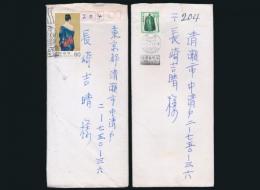 204
東京都清瀬市中清戸
二ー七五〇ー三六
長崎吉晴様
〒204
清瀬市中清戸二ー七五〇ー三六
長崎吉晴様